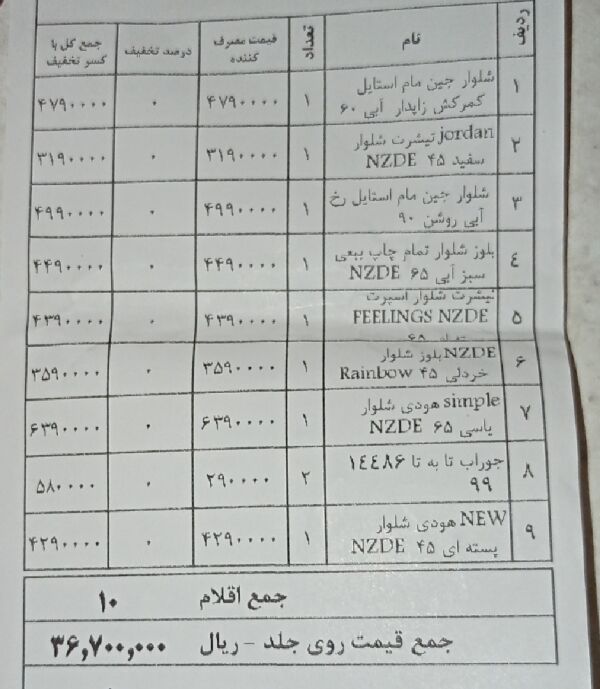 ردیف نام تعداد قیمت مصرف کننده درصد تخفیف جمع کل با کسر تخفیف
۱ شلوار جین مام استایل ۱ ۴۷۹۰۰۰۰ ۰ ۴۷۹۰۰۰۰
کمرکش زاپدار آبی ۶۰
۲ jordan تیشرت شلوار ۱ ۳۱۹۰۰۰۰ ۰ ۳۱۹۰۰۰۰
سفید ۴۵ NZDE
۳ شلوار جین مام استایل رخ ۱ ۴۹۹۰۰۰۰ ۰ ۴۹۹۰۰۰۰
آبی روشن ۹۰
۴ بلوز شلوار تمام چاپ ببعی ۱ ۴۴۹۰۰۰۰ ۰ ۴۴۹۰۰۰۰
سبز آبی ۶۵ NZDE
۵ تیشرت شلوار اسپرت ۱ ۴۳۹۰۰۰۰ ۰ ۴۳۹۰۰۰۰
FEELINGS NZDE
۶ NZDE بلوز شلوار ۱ ۳۵۹۰۰۰۰ ۰ ۳۵۹۰۰۰۰
خردلی ۴۵ Rainbow
۷ simple هودی شلوار ۱ ۶۳۹۰۰۰۰ ۰ ۶۳۹۰۰۰۰
یاسی ۶۵ NZDE
۸ جوراب تا به تا ۱۴۴۸۶ ۲ ۲۹۰۰۰۰ ۰ ۵۸۰۰۰۰
۹۹
۹ NEW هودی شلوار ۱ ۴۲۹۰۰۰۰ ۰ ۴۲۹۰۰۰۰
پسته ای ۴۵ NZDE
جمع اقلام ۱۰
جمع قیمت روی جلد - ریال ۳۶,۷۰۰,۰۰۰